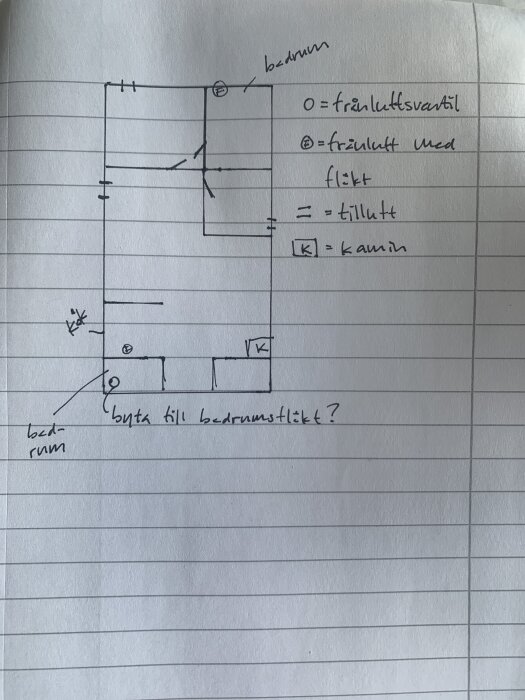 bedrum
O = frånluftsventil
Ⓕ = frånluft med
fläkt
= = tilluft
K = kamin
F
kök
F
K
bad-
rum
byta till badrumsfläkt?